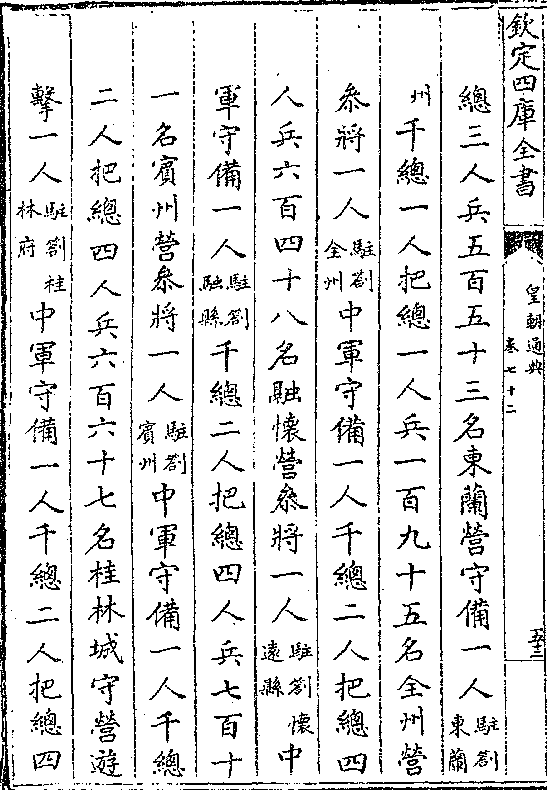 欽定四庫全書
皇朝通典
卷七十二
五十三
總三人兵五百五十三名東蘭營守備一人駐劄東蘭
州千總一人把總一人兵一百九十五名全州營
叅將一人駐劄全州中軍守備一人千總二人把總四
人兵六百四十八名融懷營叅將一人駐劄懷遠縣中
軍守備一人駐劄融縣千總二人把總四人兵七百十
一名賓州營叅將一人駐劄賓州中軍守備一人千總
二人把總四人兵六百六十七名桂林城守營遊
擊一人駐劄桂林府中軍守備一人千總二人把總四